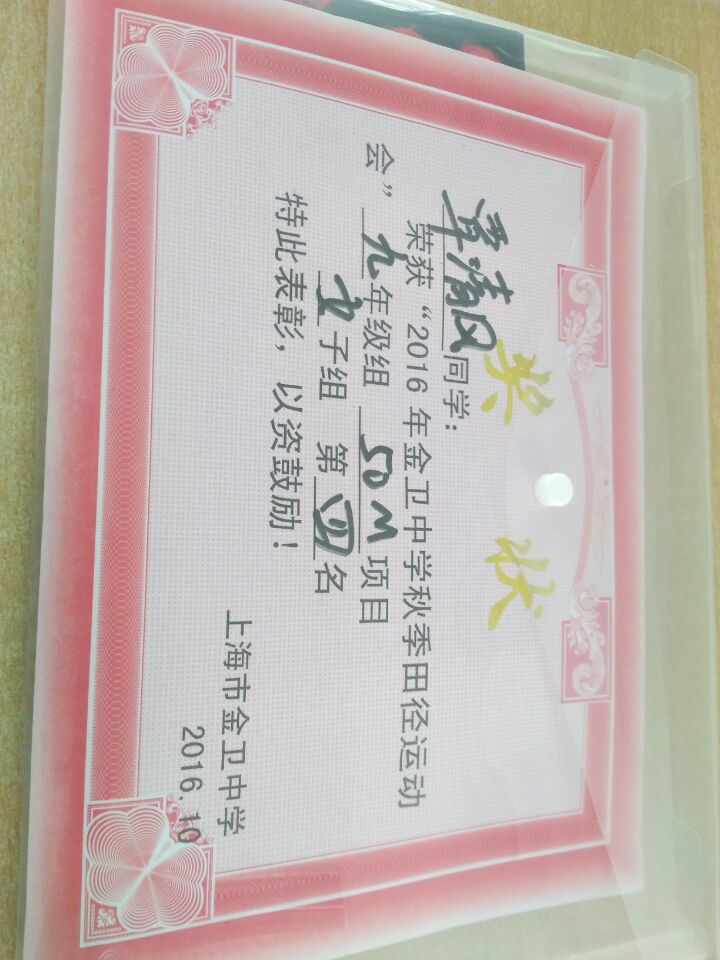 奖状
单清风同学：
荣获“2016年金卫中学秋季田径运动
会”九年级组 50M项目
女子组 第四名
特此表彰，以资鼓励！
上海市金卫中学
2016.10